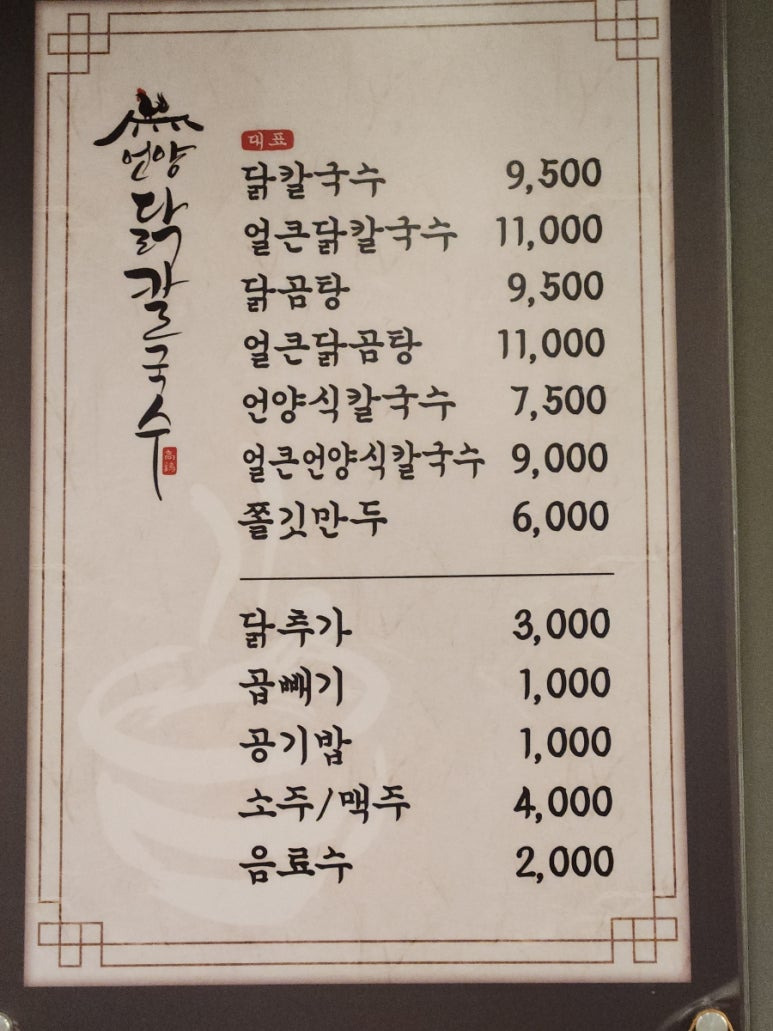 언양
닭칼국수
대표
닭칼국수 9,500
얼큰닭칼국수 11,000
닭곰탕 9,500
얼큰닭곰탕 11,000
언양식칼국수 7,500
얼큰언양식칼국수 9,000
쫄깃만두 6,000
닭추가 3,000
곱빼기 1,000
공기밥 1,000
소주/맥주 4,000
음료수 2,000